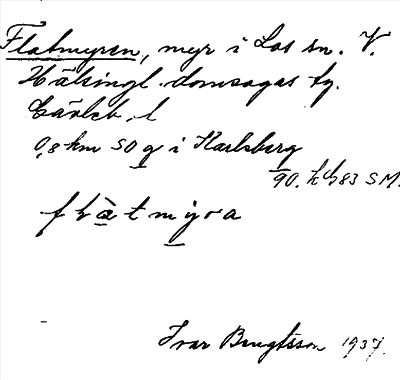 Flatmyren, myr i Los sn. V.
Hälsingl. domsagas tg.
Gävleb. l
0,8 km SO g i Karlsberg
90. kb 83 SM.
Ivar Bengtsson 1937.